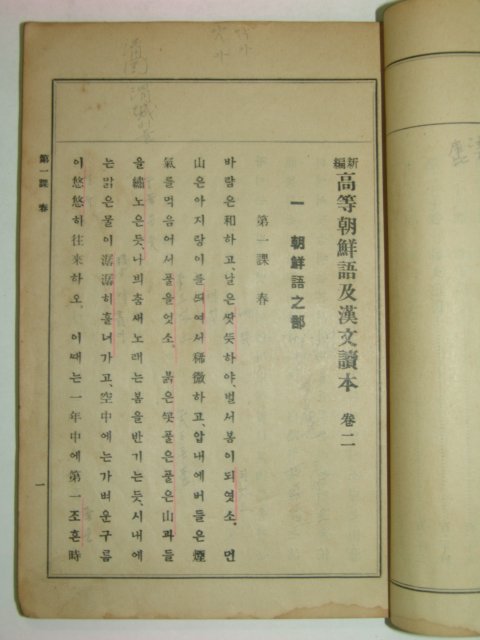 新編 高等朝鮮語及漢文讀本 卷二
一 朝鮮語之部
第一課 春
바람은和하고、날은쌋듯하야、벌서봄이되엿소、먼
山은아지랑이를씌여서稀微하고、압내에버들은煙
氣를먹음어서풀을엇소、붉은쏫풀은풀은山과들
을繡노은듯、나뷔춤새노래는봄을반기는듯、시내에
는맑은물이潺潺히흘너가고、空中에는가벼운구름
이悠悠하往來하오、이째는一年中에第一조흔時
第一課 春
一